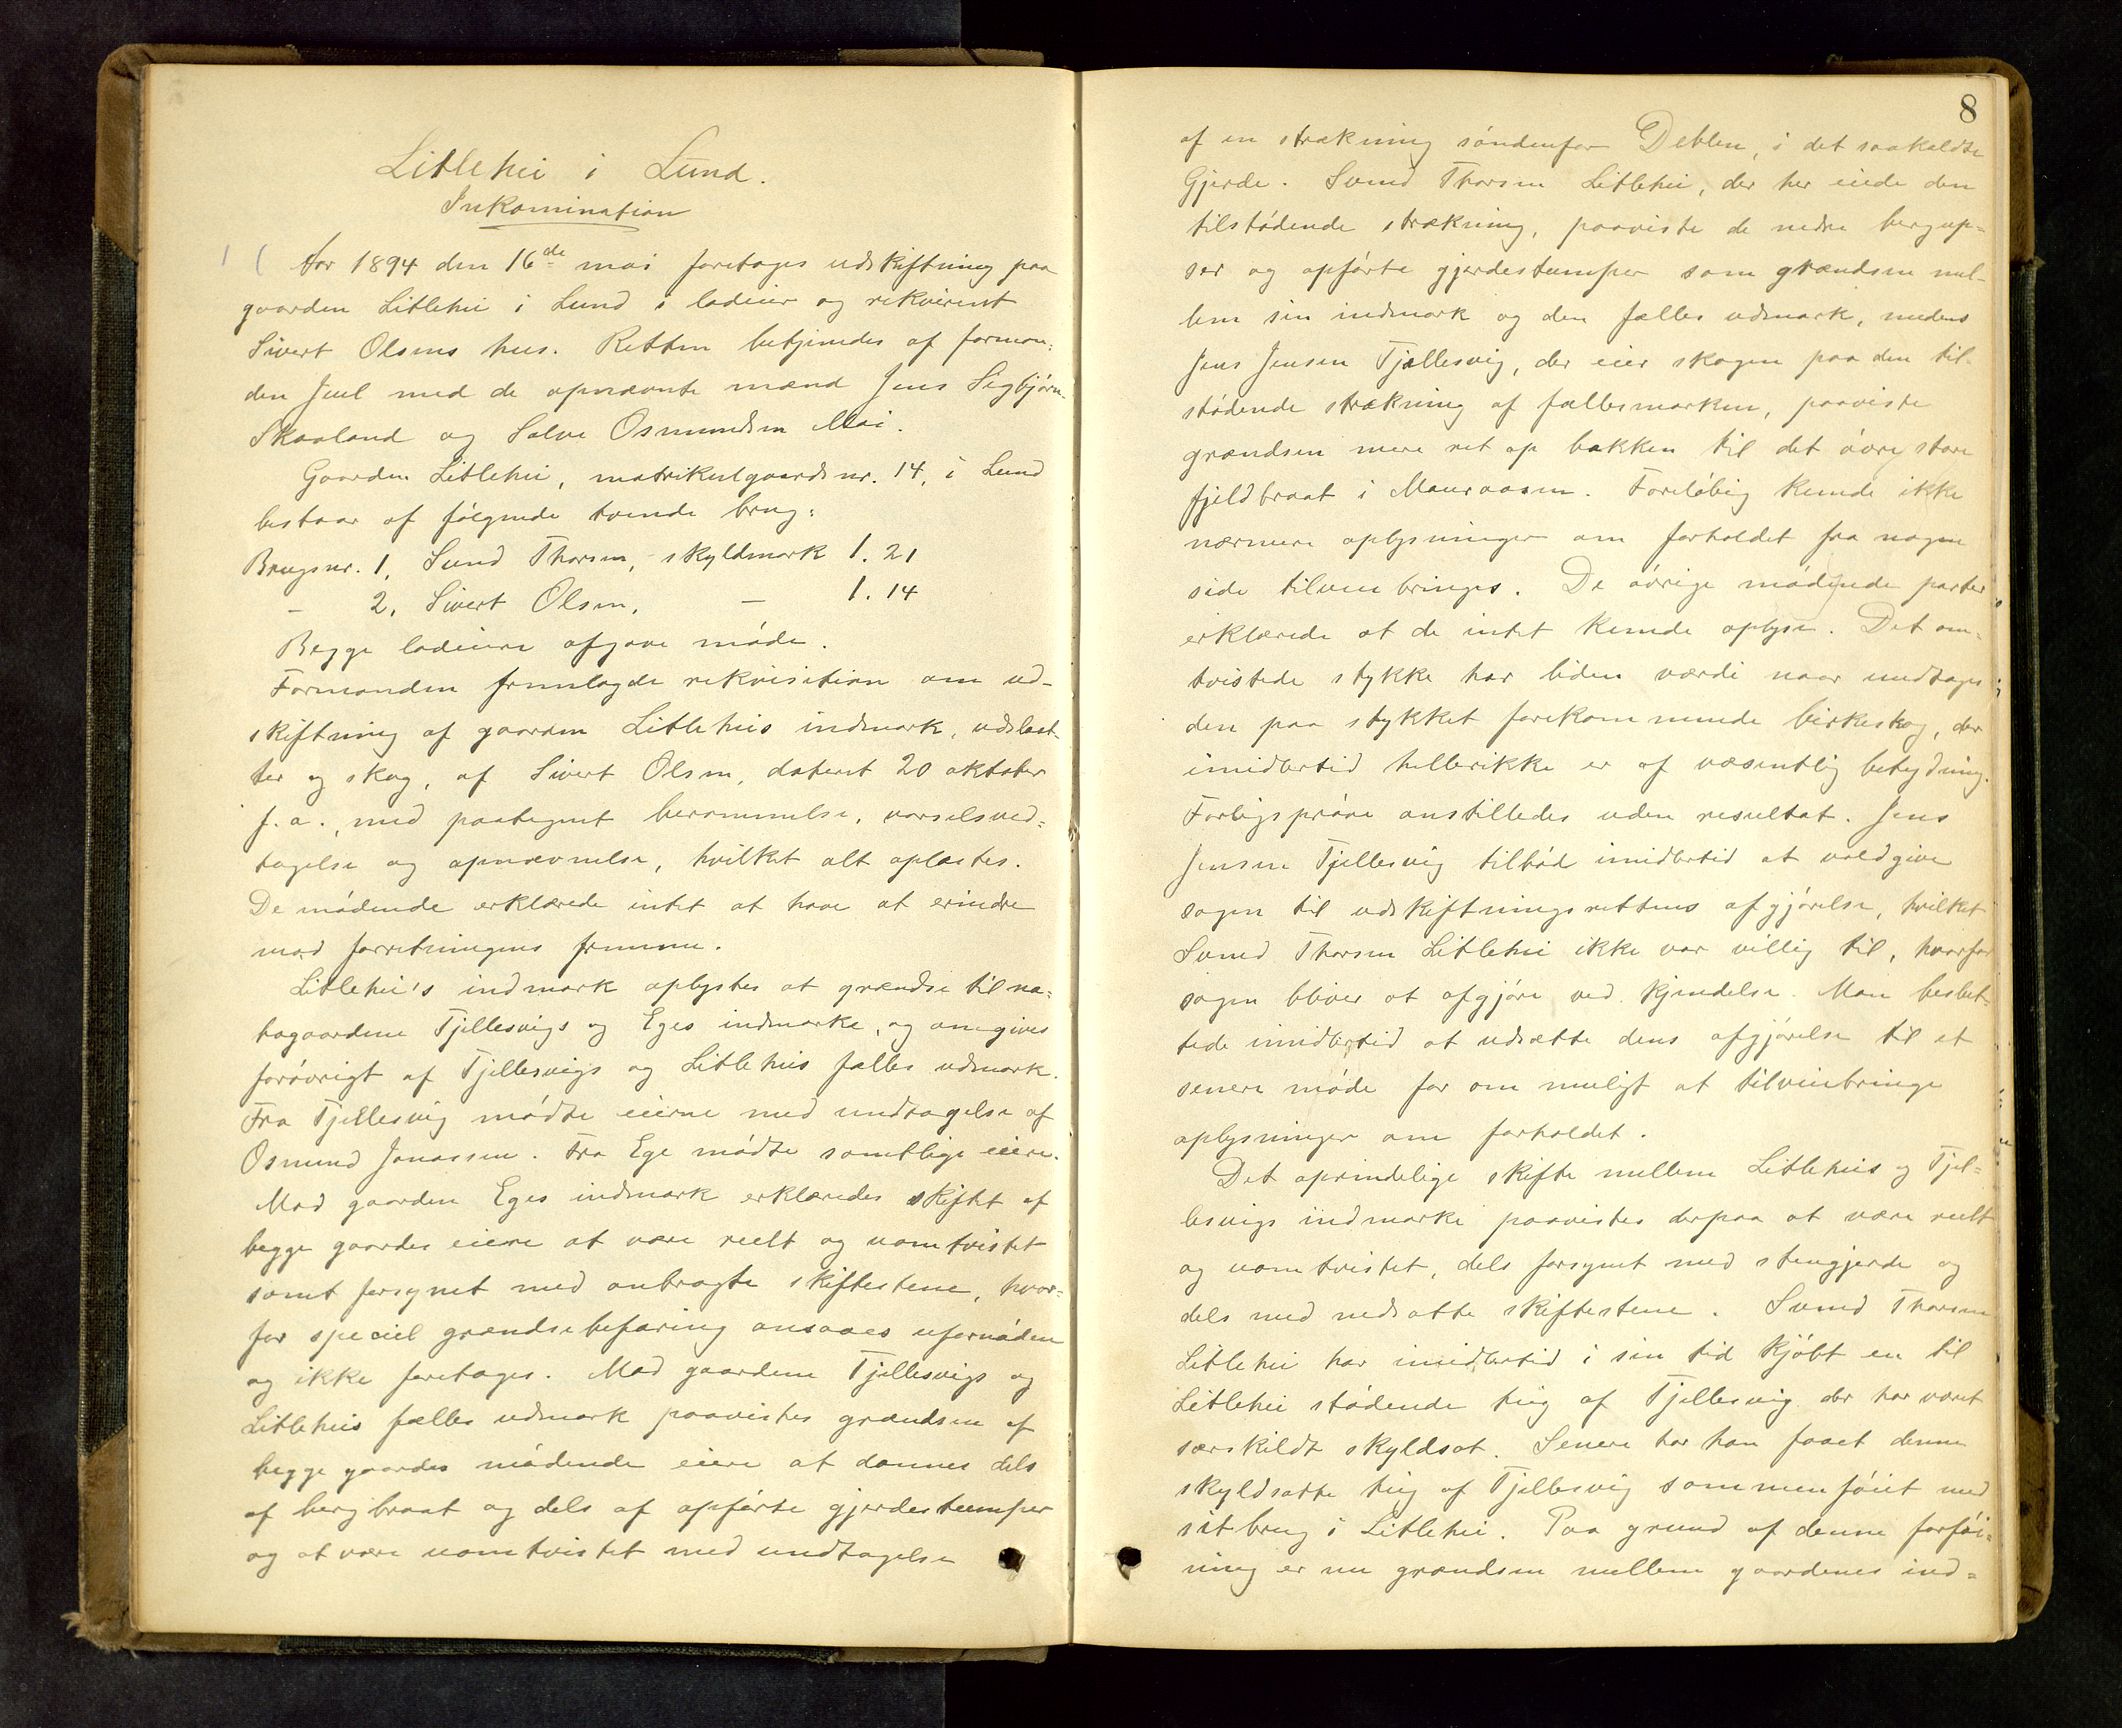 Litlehei i Lund.
Inkamination
Aar 1894 den 16de mai foretoges udskiftning paa
gaarden Litlehei i Lund i lodeier og rekvirent
Sivert Olsens hus. Retten betjentes af forman-
den Juel med de opnævnte mænd Jens Sigbjørn.
Skaaland og Salve Osmundsen Moi.
Gaarden Litlehei, matrikulgaardsnr. 14, i Lund
bestaar af følgende tvende brug:
Brugsnr. 1, Svend Thorsen, skyldmark 1.21
— 2, Sivert Olsen, — 1.14
Begge lodeiere afgave møde.
Formanden fremlagde rekvisition om ud-
skiftning af gaarden Litleheis indmark, udslaat-
ter og skog, af Sivert Olsen, dateret 20 oktober
f.a., med paategnet berammelse, varselsved-
tagelse og opnævnelse, hvilket alt oplæstes.
De mødende erklærede intet at have at erindre
mod forretningens fremme.
Litlehei's indmark oplystes at grændse til na-
bogaardene Tjellesvigs og Eges indmarke, og omgives
forøvrigt af Tjellesvigs og Litleheis fælles udmark.
Fra Tjellesvig mødte eierne med undtagelse af
Osmund Jonassen. Fra Ege mødte samtlige eiere.
Mod gaarden Eges indmark erklæredes skiftet af
begge gaardes eiere at være reelt og uomtvistet
samt forsynet med anbragte skiftestene, hvor-
for speciel grændsebefaring ansaaes ufornøden
og ikke foretoges. Mod gaardene Tjellesvigs og
Litleheis fælles udmark paavistes grændsen af
begge gaardes mødende eiere at dannes dels
af bergbraat og dels af opførte gjerdestumper
og at være uomtvistet med undtagelse
8
af en strækning søndenfor Deblen, i det saakaldte
Gjerde. Svend Thorsen Litlehei, der her eiede den
tilstødende strækning, paaviste de nedre bergup-
ser og opførte gjerdestumper som grændsen mel-
lem sin indmark og den fælles udmark, medens
Jens Jensen Tjellesvig, der eier skogen paa den til-
stødende strækning af fællesmarken, paaviste
grændsen mere ret op bakken til det øvre store
fjeldbraat i Mauraasen. Foreløbig kunde ikke
nærmere oplysninger om forholdet fra nogen
side tilveiebringes. De øvrige mødende parter
erklærede at de intet kunde oplyse. Det om-
tvistede stykke har liden værdi naar undtages
den paa stykket forekommende birkeskog, der
imidlertid hellerikke er af væsentlig betydning.
Forligsprøve anstilledes uden resultat. Jens
Jensen Tjellesvig tilbød imidlertid at voldgive
sagen til udskiftningsrettens afgjørelse, hvilket
Svend Thorsen Litlehei ikke var villig til, hvorfor
sagen bliver at afgjøre ved kjendelse. Man beslut-
tede imidlertid at udsætte dens afgjørelse til et
senere møde for om muligt at tilveiebringe
oplysninger om forholdet.
Det oprindelige skifte mellem Litleheis og Tjel-
lesvigs indmarke paavistes derpaa at være reelt
og uomtvistet, dels forsynet med stengjerde og
dels med nedsatte skiftestene. Svend Thorsen
Litlehei har imidlertid i sin tid kjøbt en til
Litlehei stødende teig af Tjellesvig der har været
særskildt skyldsat. Senere har han faaet denne
skyldsatte teig af Tjellesvig sammenføiet med
sit brug i Litlehei. Paa grund af denne forføi-
ning er nu grændsen mellem gaardenes ind-